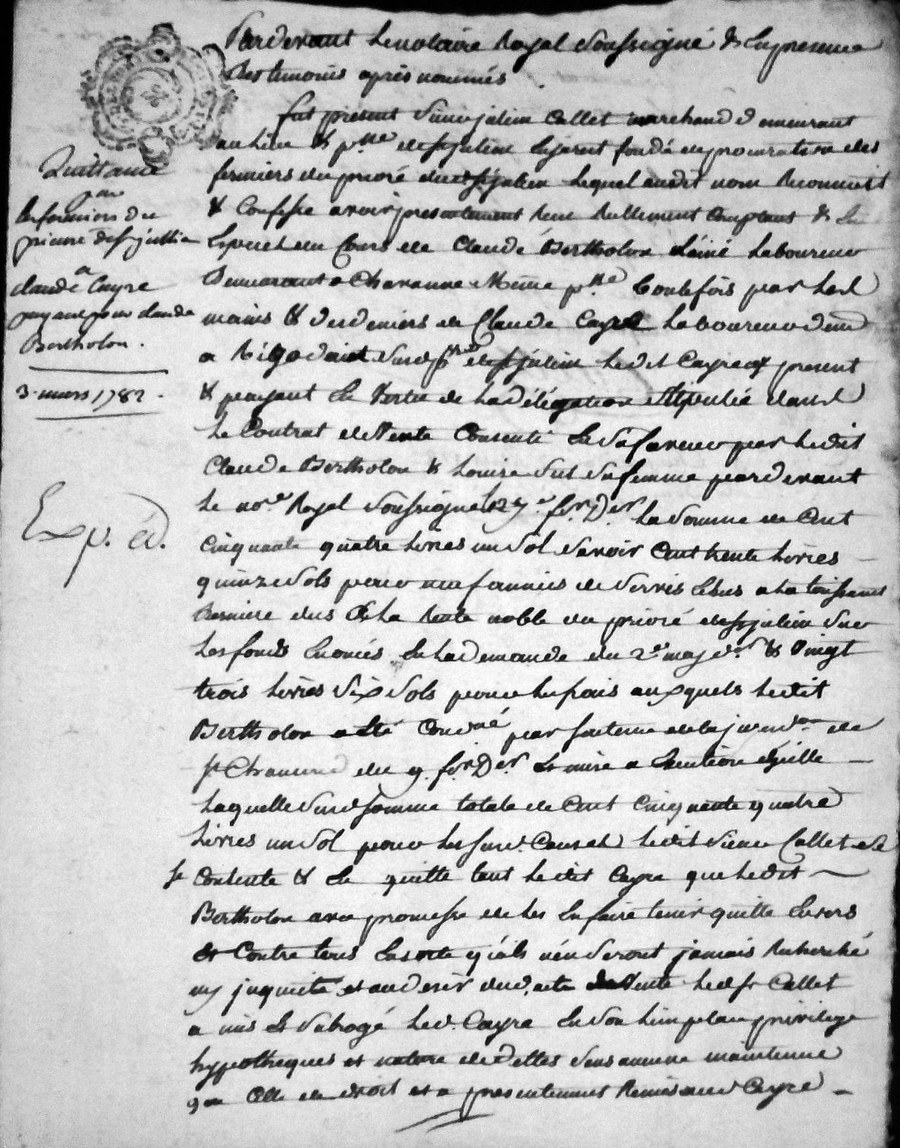 Pardevant Le notaire Royal Soussigné & En presence
Des temoins après nommés
fut present Sieur julien Callet marchand demeurant
au Lieu & psse de St julien fondé de procuration des
fermiers du prioré du St julien Lequel audit nom Reconnoit
& Confesse avoir presentement Reçu Réellement Comptant &
de Claude Bertholon L'ainé Laboureur
Demeurant a Chavanne Même psse toutefois par Les
mains & des deniers de Claude Cayre Laboureur dem.t
a dud. St julien Ledit Cayre present
& payant En Vertu de La délégation Stipulée dans
Le Contrat de Vente Consenti En Sa faveur par Ledit
Claude Bertholon & Louise Sa femme pardevant
Le nore Royal Soussigné Le 27e fer Der La Somme de Cent
cinquante quatre Livres un Sol Savoir Cent trente Livres
quinze Sols pour neuf années de Servis Echus a La toussaint
Derniere dus a La Rente noble du prioré de St julien Sur
Les fonds Enoncés En La demande du 2e may der & Vingt
trois Livres Six Sols pour Les frais auxquels Ledit
Bertholon a été Condné par Sentence de la de
St Chamond du 9 fer Der
Laquelle Susd. Somme totale de Cent Cinquante quatre
Livres un Sol pour Les Susd. Causes Ledit Sieur Callet Se
Contente & En quitte tant Ledit Cayre que Ledit
Bertholon avec promesse de Les En faire tenir quitte Envers
& Contre tous En Sorte qu'ils n'en Seront jamais Recherché
ny inquieté et au desir dud. acte de Vente Led. Sr Callet
a mis & Subrogé Led. Cayre En Son Lieu place privilege
hypotheques et nature de dettes Sans aucune maintenue
que Celle de droit et a presentement Remis aud. Cayre
Quittance
par
Les fermiers du
prieuré de St jullien
a
claude Cayre
payant pour claude
Bertholon.
3 mars 1782.
Exp. éd.